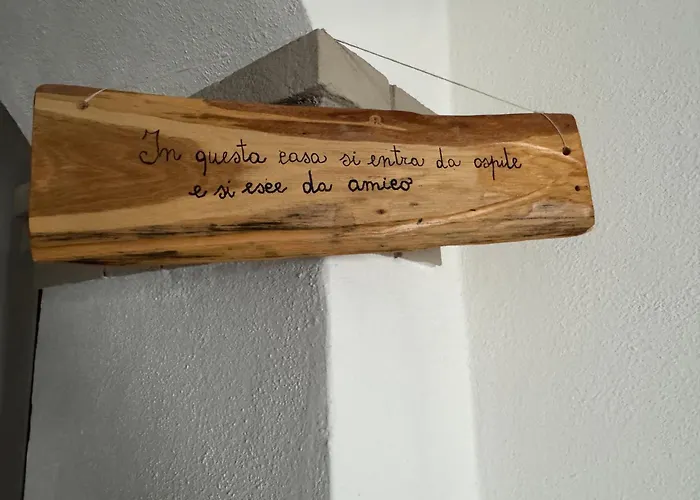 In questa casa si entra da ospite
e si esce da amico